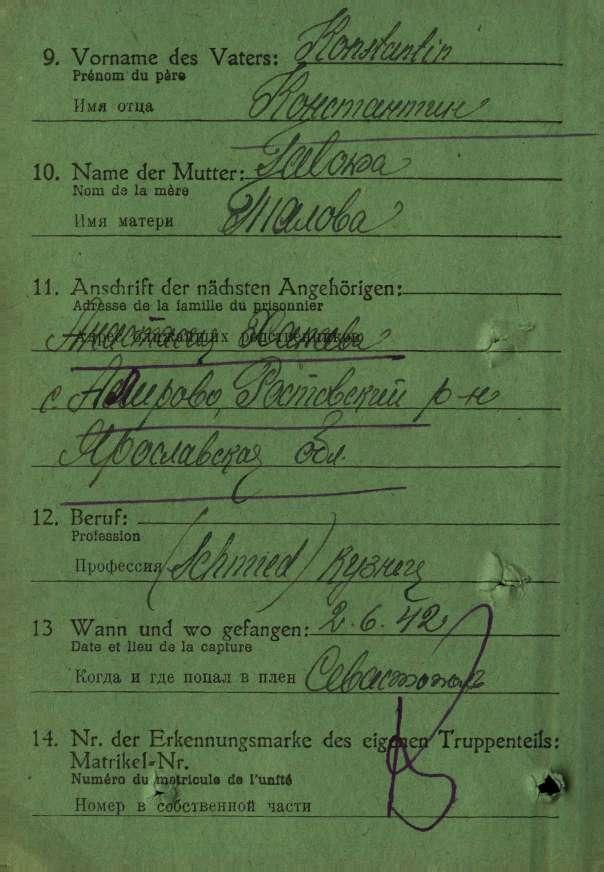 9. Vorname des Vaters: Konstantin
Prénom du père
Имя отца Константин
10. Name der Mutter:
Nom de la mère
Имя матери Талова
11. Anschrift der nächsten Angehörigen:
Adresse de la famille du prisonnier
Адрес ближайших родственников
Анастасия
с. Ростовский р-н
Ярославская обл.
12. Beruf:
Profession
Профессия (Schmied) кузнец
13 Wann und wo gefangen: 2.6.42
Date et lieu de la capture
Когда и где попал в плен Севастополь
14. Nr. der Erkennungsmarke des eigenen Truppenteils:
Matrikel-Nr.
Numéro du matricule de l'unité
Номер в собственной части